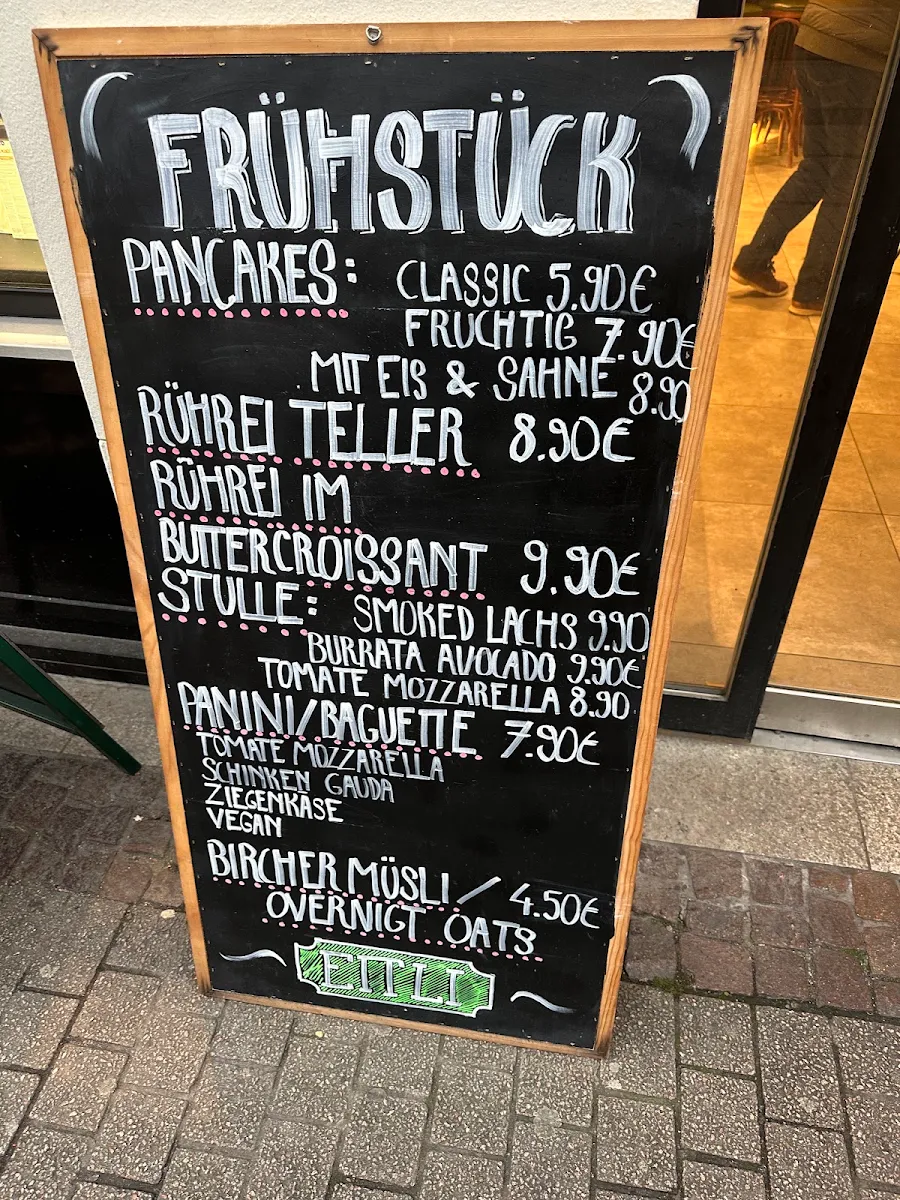 FRÜHSTÜCK
PANCAKES: CLASSIC 5.90€
FRUCHTIG 7.90€
MIT EIS & SAHNE 8.90
RÜHREI TELLER 8.90€
RÜHREI IM
BUTTERCROISSANT 9.90€
STULLE: SMOKED LACHS 9.90
BURRATA AVOCADO 9.90€
TOMATE MOZZARELLA 8.90
PANINI/BAGUETTE 7.90€
TOMATE MOZZARELLA
SCHINKEN GAUDA
ZIEGENKASE
VEGAN
BIRCHER MÜSLI / 4.50€
OVERNIGT OATS
EITLI